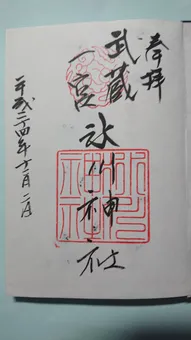 奉拝
武蔵
一宮
氷川神社
平成二十四年十二月二日